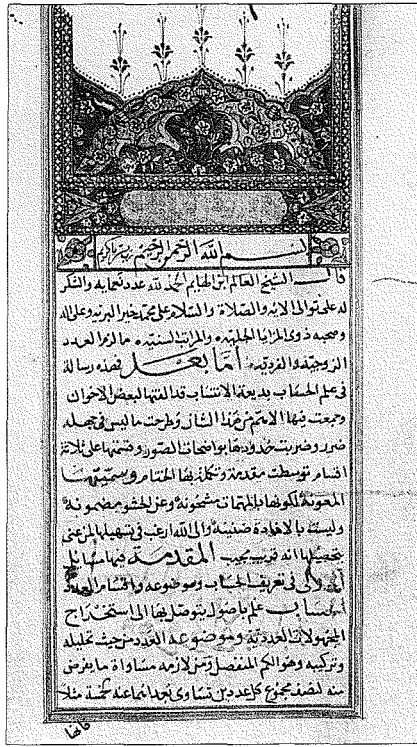 بسم الله الرحمن الرحيم
قال الشيخ العالم ابن الهايم الحمد لله عدد نعمايه والشكر
له على توالى الايه والصلاة والسلام على محمد خير البريه وعلى اله
وصحبه ذوى المزايا الجليه والمراتب السنيه ما لزم العدد
الزوجية والفردية اما بعد فهذه رسالة
في علم الحساب بديعة الانتساب قد الفتها لبعض الاخوان
وجمعت فيها الاهم من هذا الشان وطرحت ما ليس في جهله
ضرر وضربت حدودها بواضحات الصور وضمنتها على ثلاثة
اقسام توسطت مقدمة وتكملة بها الختام وسميتها
المعونة لكونها بالمهمات مشحونة وعن الحشو مصونة
وليست بالافادة ضنينة والى الله ارغب في تسهيلها لمن عنى
بتحصيلها انه قريب مجيب المقدمة فيها مسائل
الاولى في تعريف الحساب وموضوعه واقسام العدد
الحساب علم باصول يتوصل بها الى استخراج
المجهولات العددية وموضوعه العدد من حيث تحليله
وتركيبه وهو الكم المنفصل ومن لازمه مساواة ما يفرض
منه لنصف مجموع كل عددين تساوى بعداهما عنه كخمسة مثلا
فانها